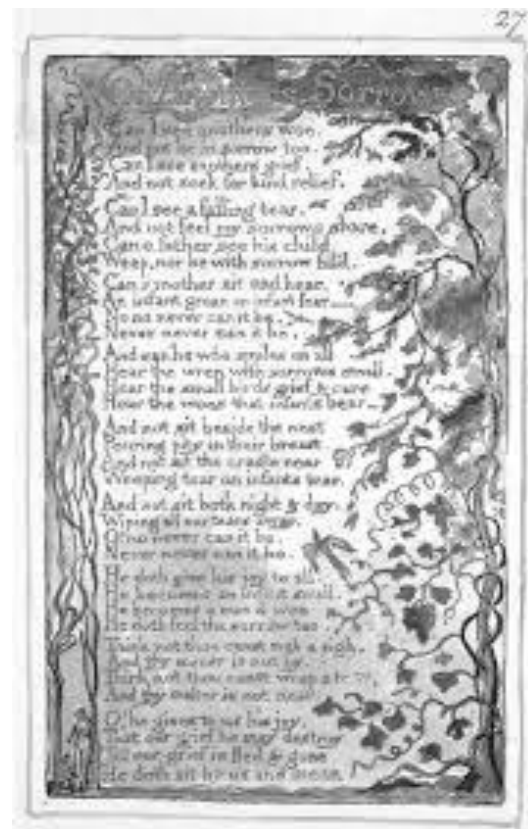 27
On Anothers Sorrow
Can I see anothers woe.
And not be in sorrow too.
Can I see anothers grief,
And not seek for kind relief.
Can I see a falling tear.
And not feel my sorrows share,
Can a father see his child,
Weep, nor be with sorrow fill'd.
Can a mother sit and hear.
An infant groan an infant fear—
No no never can it be.
Never never can it be.
And can he who smiles on all
Hear the wren with sorrows small.
Hear the small birds grief & care
Hear the woes that infants bear—
And not sit beside the nest
Pouring pity in their breast
And not sit the cradle near
Weeping tear on infants tear.
And not sit both night & day.
Wiping all our tears away.
O! no never can it be.
Never never can it be.
He doth give his joy to all.
He becomes an infant small.
He becomes a man of woe
He doth feel the sorrow too.
Think not thou canst sigh a sigh,
And thy maker is not by.
Think not thou canst weep a tear,
And thy maker is not near
O! he gives to us his joy.
That our grief he may destroy
Till our grief is fled & gone
He doth sit by us and moan